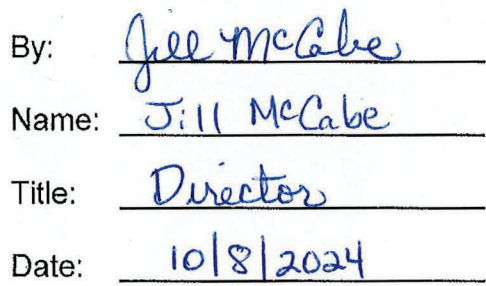 By: Jill McCabe
Name: Jill McCabe
Title: Director
Date: 10/8/2024